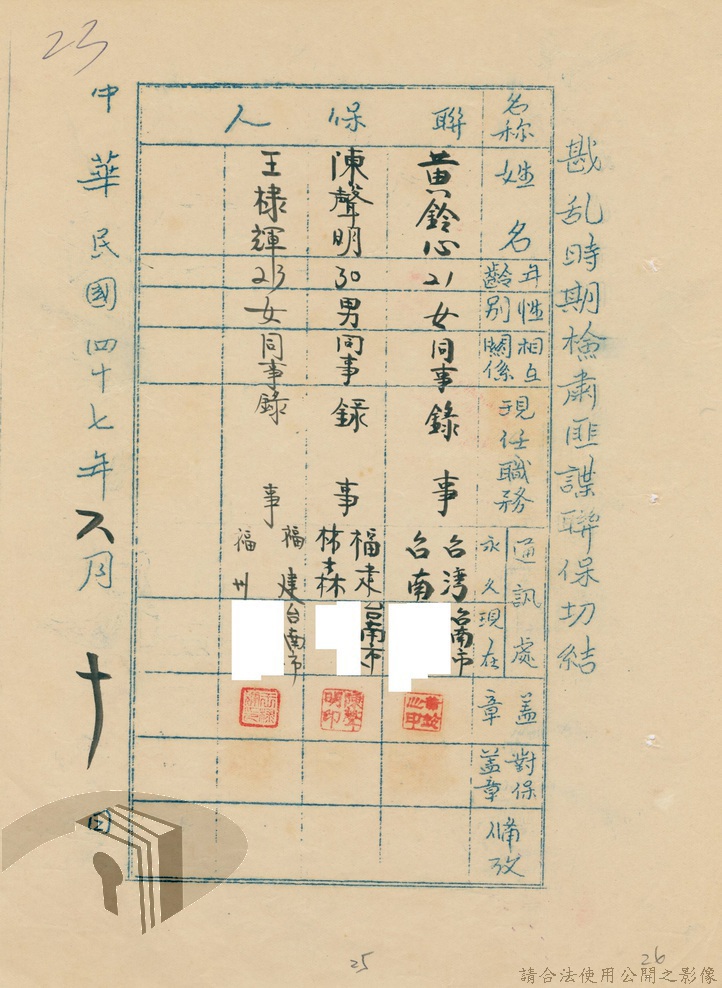 23
戡乱時期檢肅匪諜聯保切結
名称 聯保人
姓名 年齡 性別 相互關係 現任職務 通訊處 永久 現在 蓋章 對保蓋章 備攷
黄鈴心 21 女 同事 錄事 台湾台南 台南市
陳聲明 30 男 同事 錄事 福建林森 台南市
王棣輝 23 女 同事 錄事 福建福州 台南市
陳聲明印
中華民國四十七年六月十日
25
26
請合法使用公開之影像